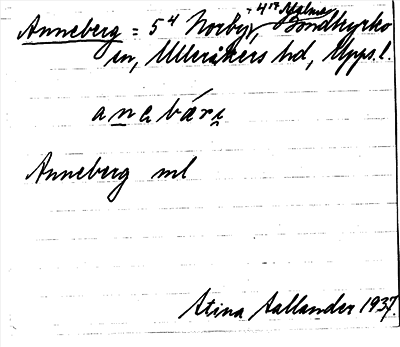 Anneberg = 5⁴ Norby, 4¹⁹ Malma, Bondkyrko
sn, Ulleråkers hd, Upps. l.
anebärɩ
Anneberg ml
Stina Aallander 1937.